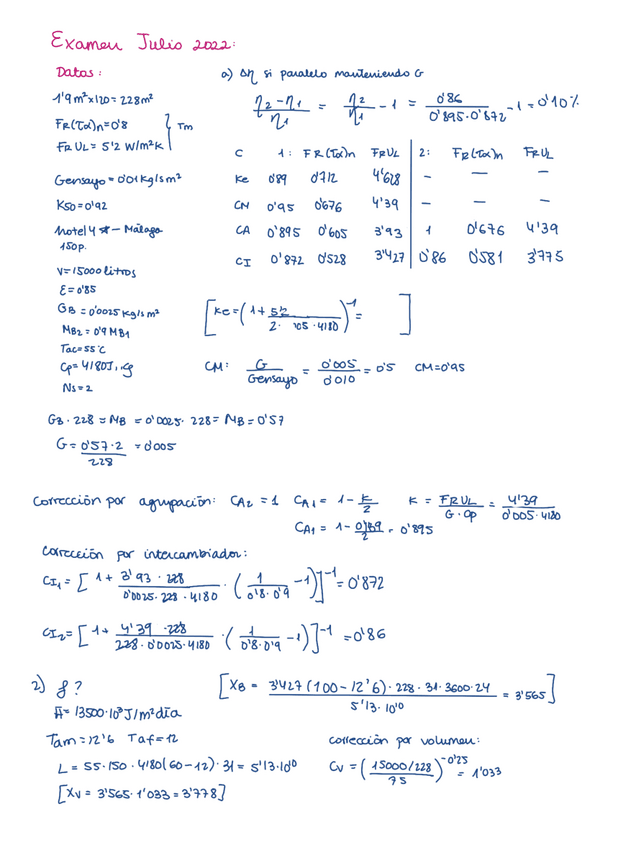 Examen Julio 2022:
Datos:
1'9m²x120=228m²
FR(τα)n=0'8
FRUL= 5'2 W/m²K
Tm
Gensayo=0'01kg/sm²
K50=0'92
Hotel 4* - Málaga
150p.
V=15000 litros
ε=0'85
GB=0'0025kg/sm²
MB2=0'9MB1
Tac=55°C
Cp=4180J/kg
Ns=2
a) Δη si paralelo manteniendo G
η2-η1/η1 = η2/η1 - 1 = 0'86/0'895·0'872 - 1 = 0'10%
C 1: FR(τα)n FRUL 2: FR(τα)n FRUL
Ke 0'89 0'712 4'628 - - -
CM 0'95 0'676 4'39 - - -
CA 0'895 0'605 3'93 1 0'676 4'39
CI 0'872 0'528 3'427 0'86 0'581 3'775
[Ke=(1+ 5'2/2· '05·4180)⁻¹= ]
CM: G/Gensayo = 0'005/0'010 = 0'5 CM=0'95
GB·228=MB=0'0025·228=MB=0'57
G= 0'57·2/228 = 0'005
Corrección por agrupación: CA2=1 CA1= 1- K/2 K= FRUL/G·Cp = 4'39/0'005·4180
CA1= 1- /2 = 0'895
Corrección por intercambiador:
CI1=[1+ 3'93·228/0'0025·228·4180 ·(1/0'8·0'9 -1)]⁻¹=0'872
CI2=[1+ 4'39·228/228·0'0025·4180 ·(1/0'8·0'9 -1)]⁻¹=0'86
2) f?
H=13500·10³J/m²día
Tam=12'6 Taf=12
L=55·150·4180(60-12)·31=5'13·10¹⁰
[XV=3'565·1'033=3'778]
[XB= 3'427(100-12'6)·228·31·3600·24/5'13·10¹⁰ = 3'565]
corrección por volumen:
CV=(15000/228/75)⁻⁰'²⁵=1'033